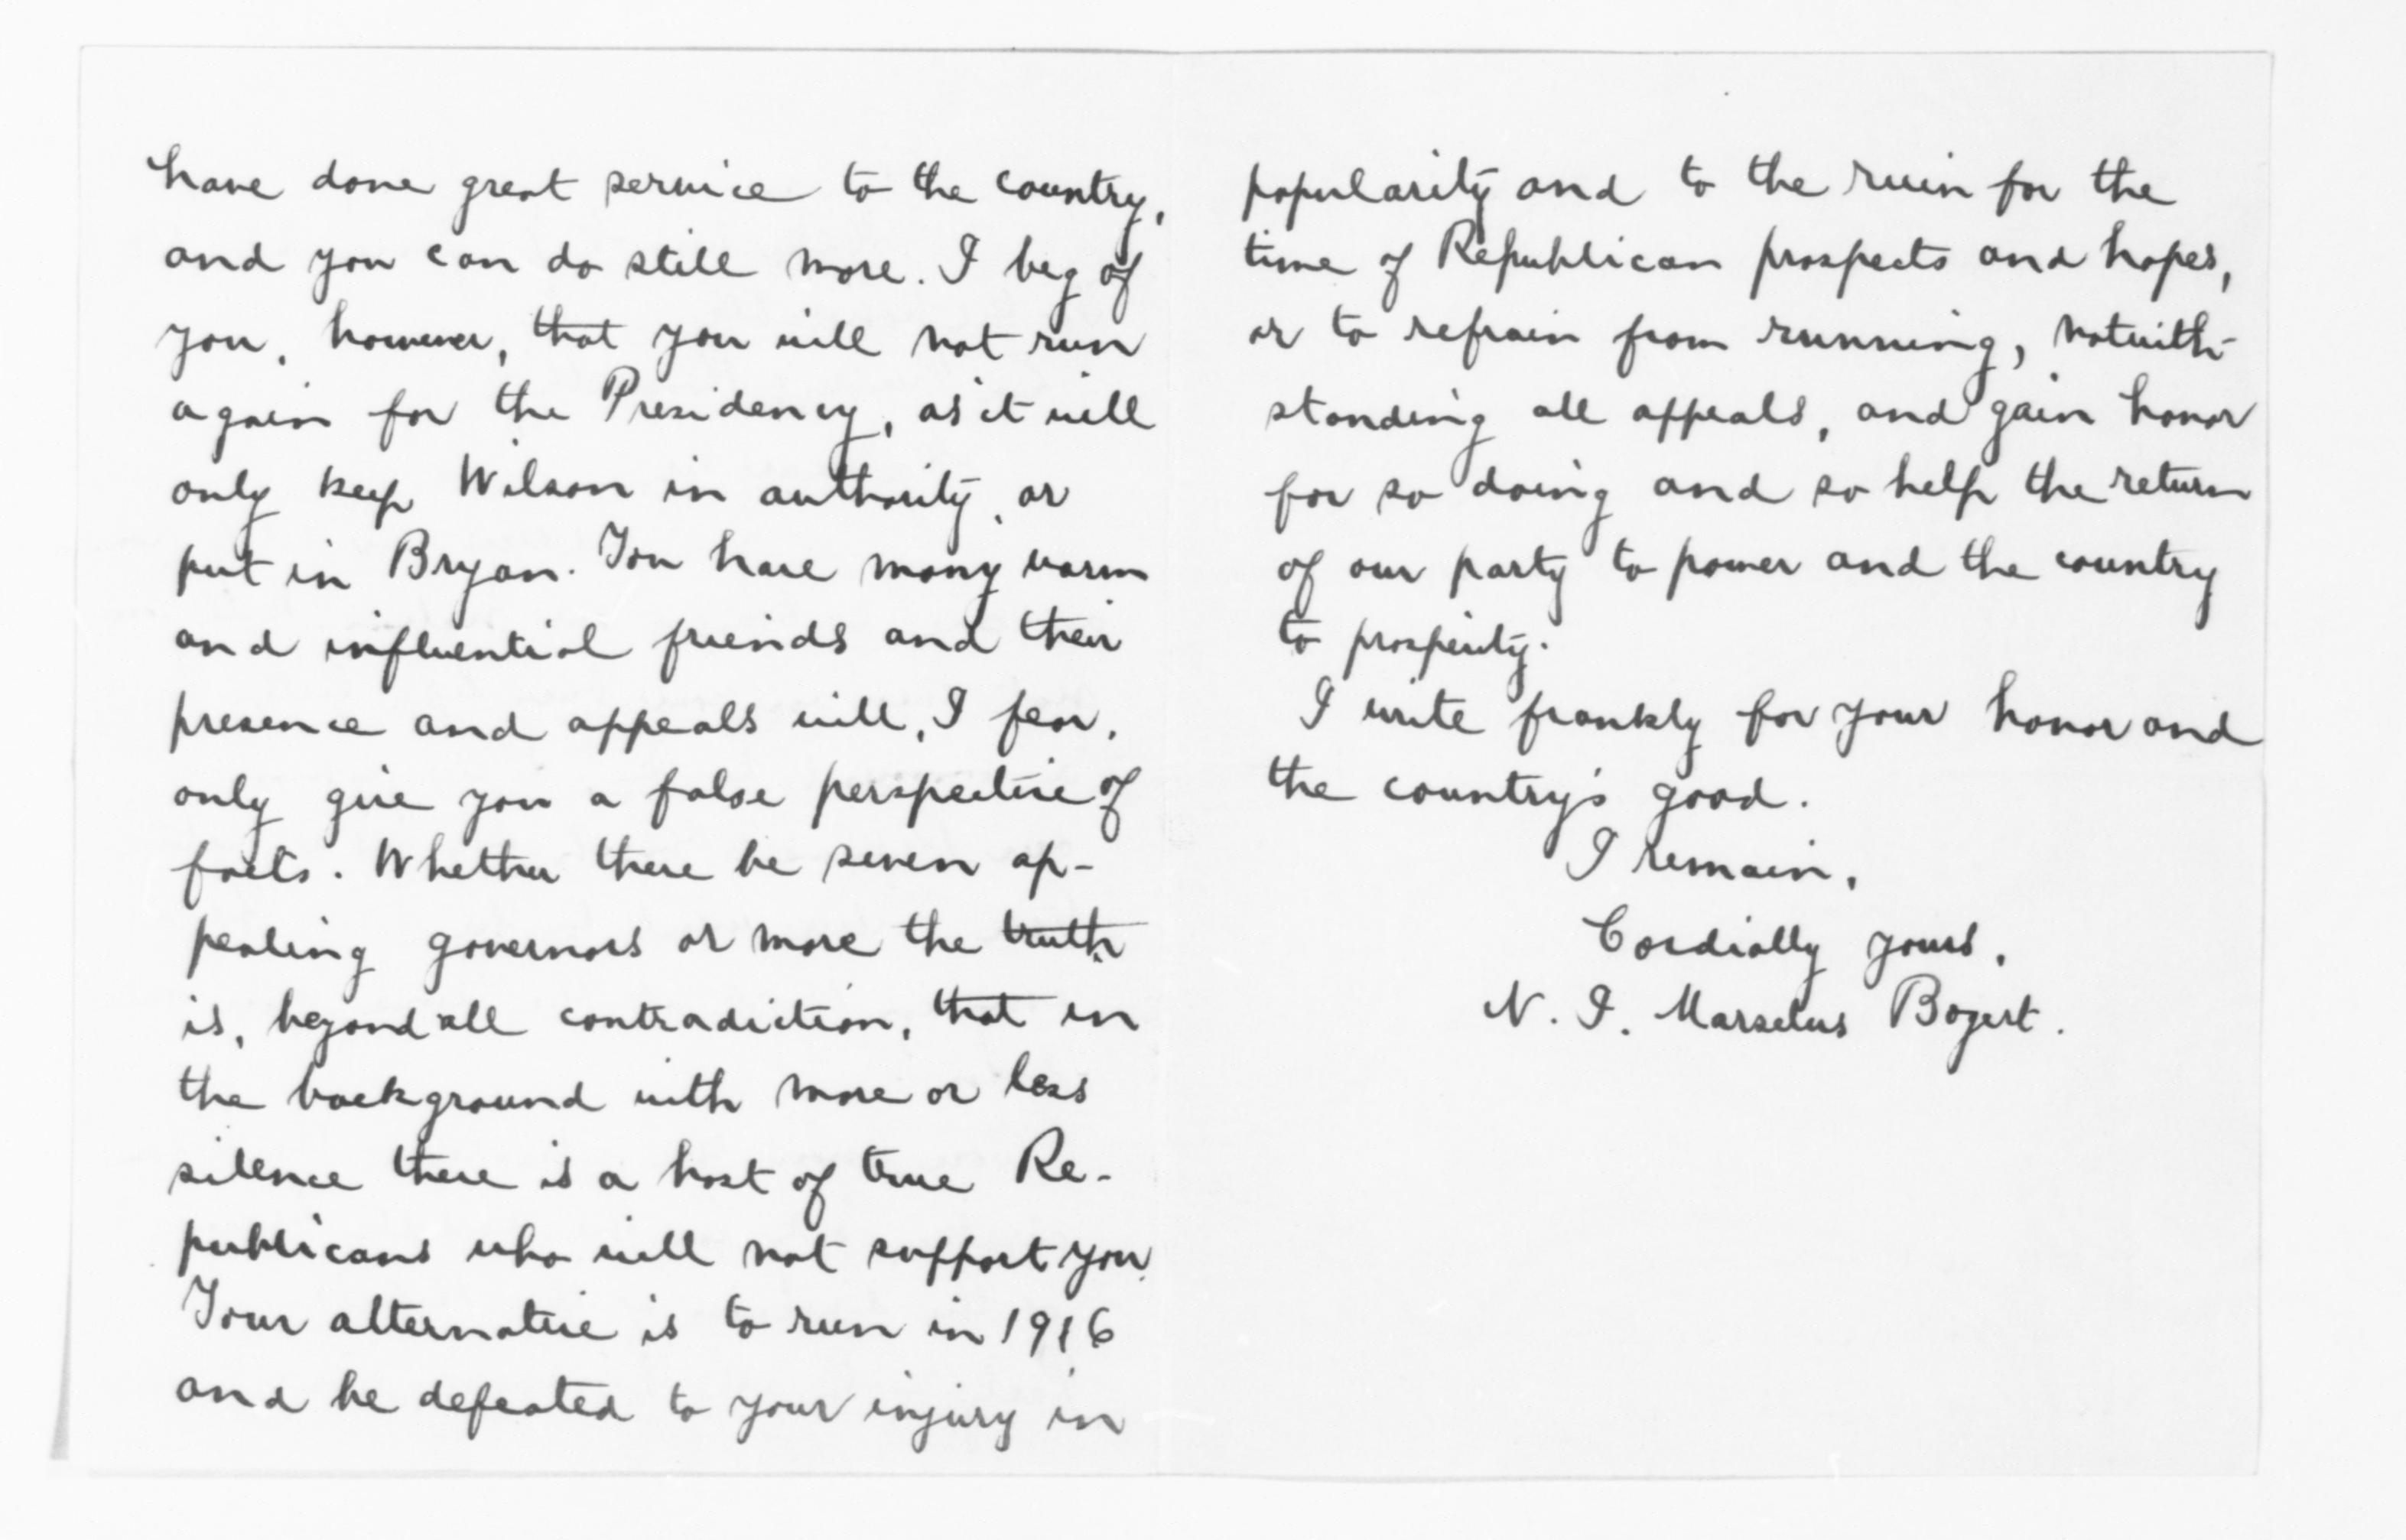 have done great service to the country,
and you can do still more. I beg of
you, however, that you will not run
again for the Presidency, as it will
only keep Wilson in authority, or
put in Bryan. You have many warm
and influential friends and their
presence and appeals will, I fear,
only give you a false perspective of
facts. Whether there be seven ap-
pealing governors or more the truth
is, beyond all contradiction, that in
the background with more or less
silence there is a host of true Re-
publicans who will not support you.
Your alternative is to run in 1916
and be defeated to your injury in
popularity and to the ruin for the
time of Republican prospects and hopes,
or to refrain from running, notwith-
standing all appeals, and gain honor
for so doing and so help the return
of our party to power and the country
to prosperity.
I write frankly for your honor and
the country's good.
I remain,
Cordially yours,
N. I. Marselus Bogert.